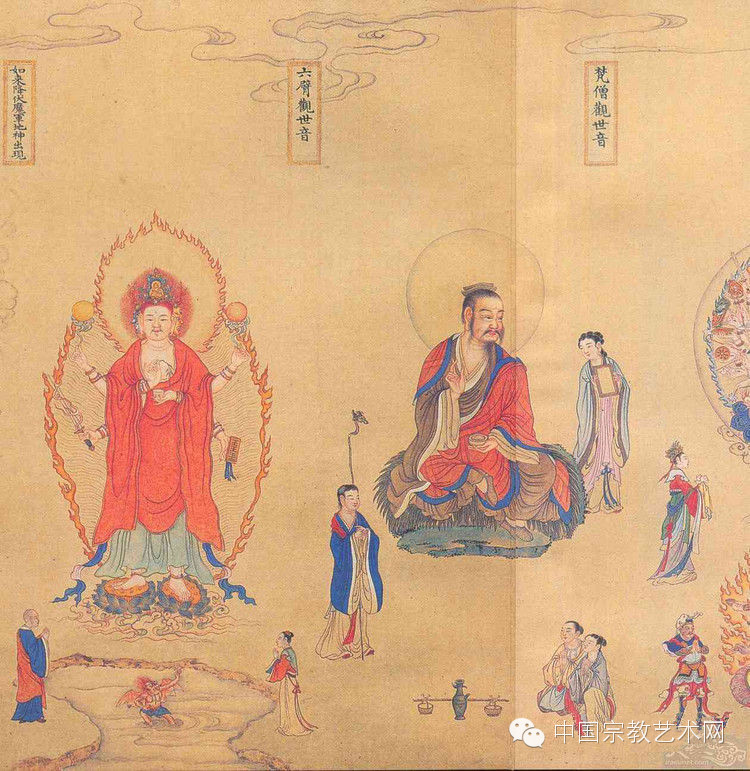 梵僧觀世音
六臂觀世音
如来降伏魔軍地神出現
中国宗教艺术网